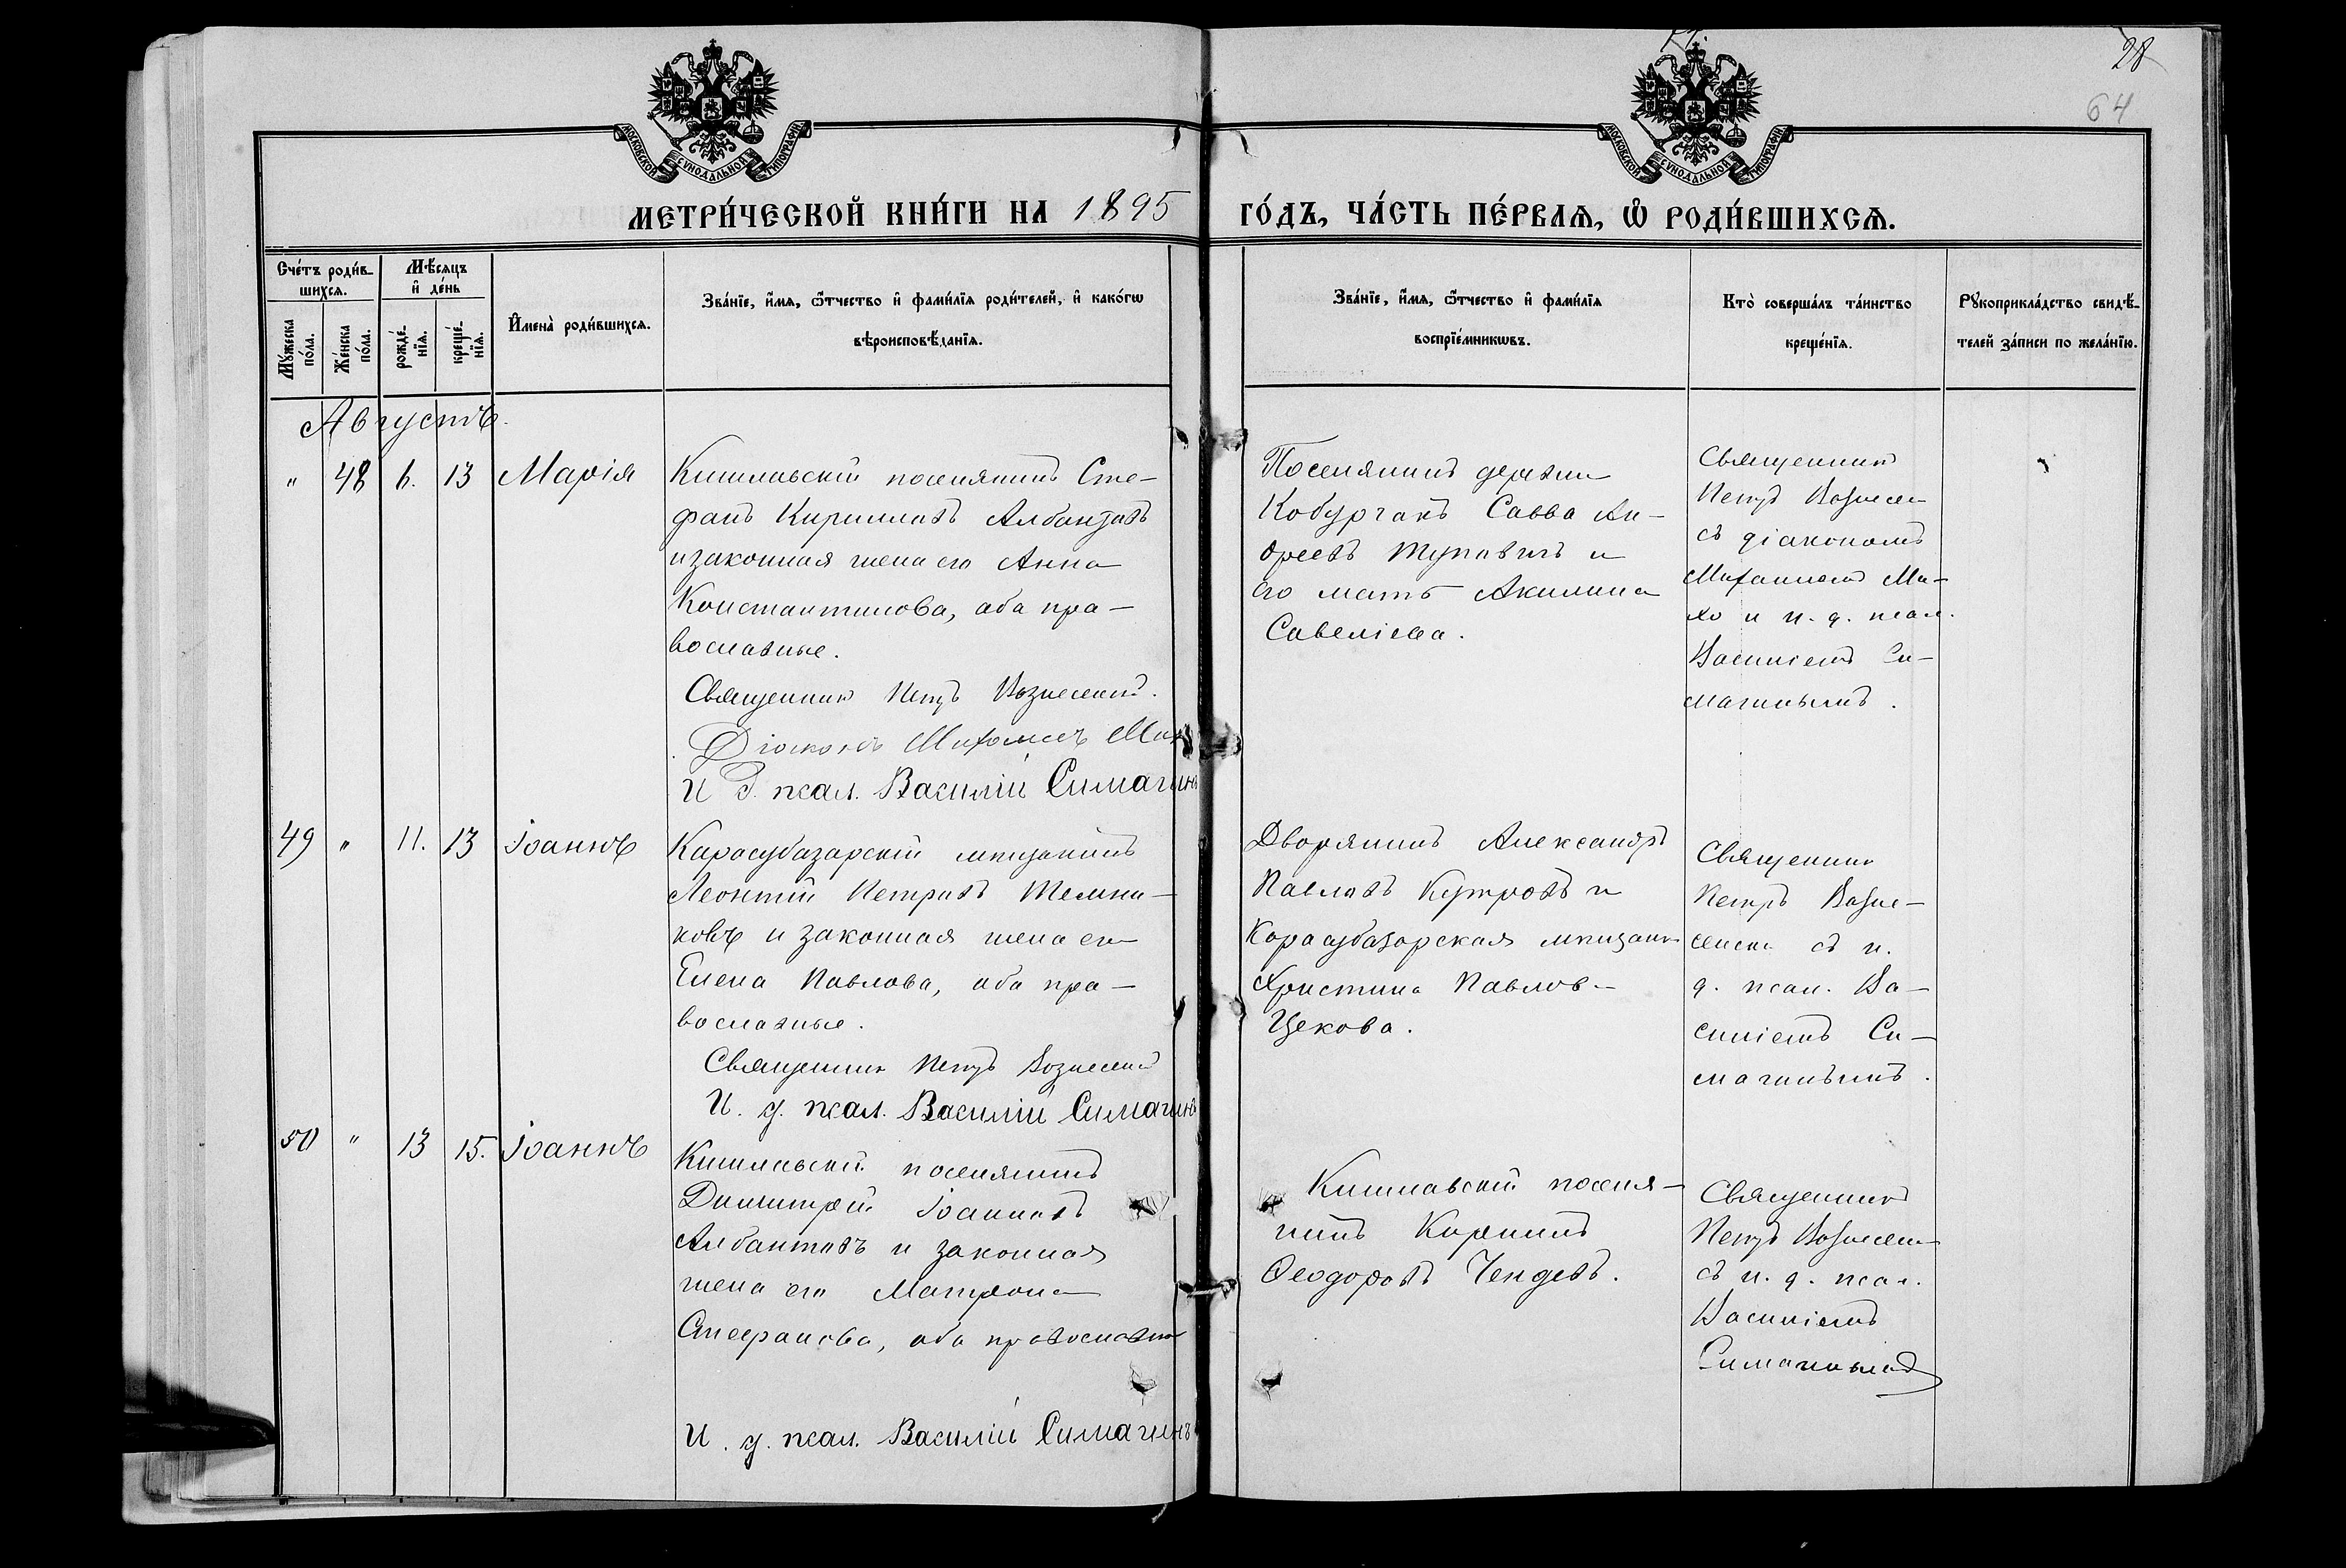 28
64
МОСКОВСКОЙ СѴНОДАЛЬНОЙ ТИПОГРАФІИ
МОСКОВСКОЙ СѴНОДАЛЬНОЙ ТИПОГРАФІИ
МЕТРИ́ЧЕСКОЙ КНИ́ГИ НА 1895 ГО́ДЪ, ЧА́СТЬ ПЕ́РВАѦ, Ѡ РОДИ́ВШИХСѦ.
Сче́тъ роди́в-
шихсѧ.
Мѣ́сѧцъ
и де́нь
Мꙋ́жеска
по́ла.
Же́нска
по́ла.
рожде́-
нїѧ.
креще́-
нїѧ.
Имена̀ роди́вшихсѧ.
Зва́нїе, и́мѧ, ѻ́тчество и фами́лїѧ роди́телей, и како́гѡ
вѣроисповѣ́данїѧ.
Зва́нїе, и́мѧ, ѻ́тчество и фами́лїѧ
воспрїе́мникѡвъ.
Кто̀ соверша́лъ та́инство
креще́нїѧ.
Рꙋкоприкла́дство свидѣ́-
телей за́писи по жела́нїю.
Августъ.
" 48 6. 13 Марія
Кишлавскій поселянинъ Сте-
фанъ Кирилловъ Албантовъ
и законная жена его Анна
Константинова, оба пра-
вославные.
Священникъ Петръ Вознесенскій.
Діаконъ Михаилъ
И Д. псал. Василій Симагинъ
Поселянинъ деревни
Кобурчакъ Савва Ан-
дреевъ и
его мать Акилина
Савеліева.
Священникъ
Петръ Вознесен
съ діакономъ
Михаиломъ Ми-
хо и и. д. псал.
Василіемъ Си-
магинымъ.
49 " 11. 13 Іоаннъ
Карасубазарскій мѣщанинъ
Леонтій Петровъ Мельни-
ковъ и законная жена его
Елена Павлова, оба пра-
вославные.
Священникъ Петръ Вознесенскій
И. д. псал. Василій Симагинъ
Дворянинъ Александръ
Павловъ и
Карасубазарская мѣщанка
Христина Павлова
Цекова.
Священникъ
Петръ Возне-
сенск съ и.
д. псал. Ва-
силіемъ Си-
магинымъ.
50 " 13 15. Іоаннъ
Кишлавскій поселянинъ
Димитрій Іоанновъ
Албантовъ и законная
жена его Матрона
Стефанова, оба православные
И. д. псал. Василій Симагинъ
Кишлавскій поселя-
нинъ Кириллъ
Ѳеодоровъ Чендевъ.
Священникъ
Петръ Вознесен
съ и. д. псал.
Василіемъ
Симагинымъ